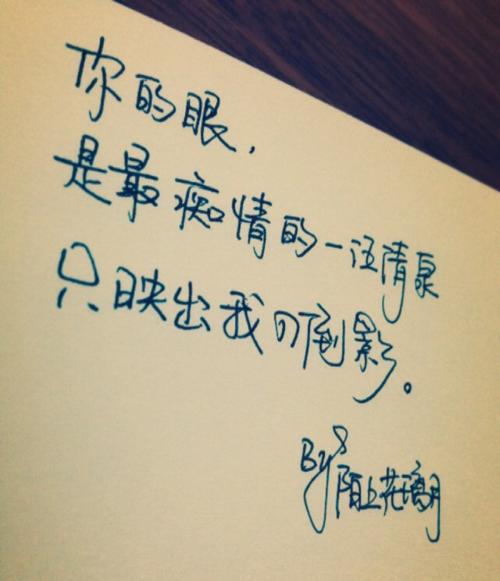 你的眼,
是最痴情的一汪清泉
只映出我的倒影。
By 陌上花